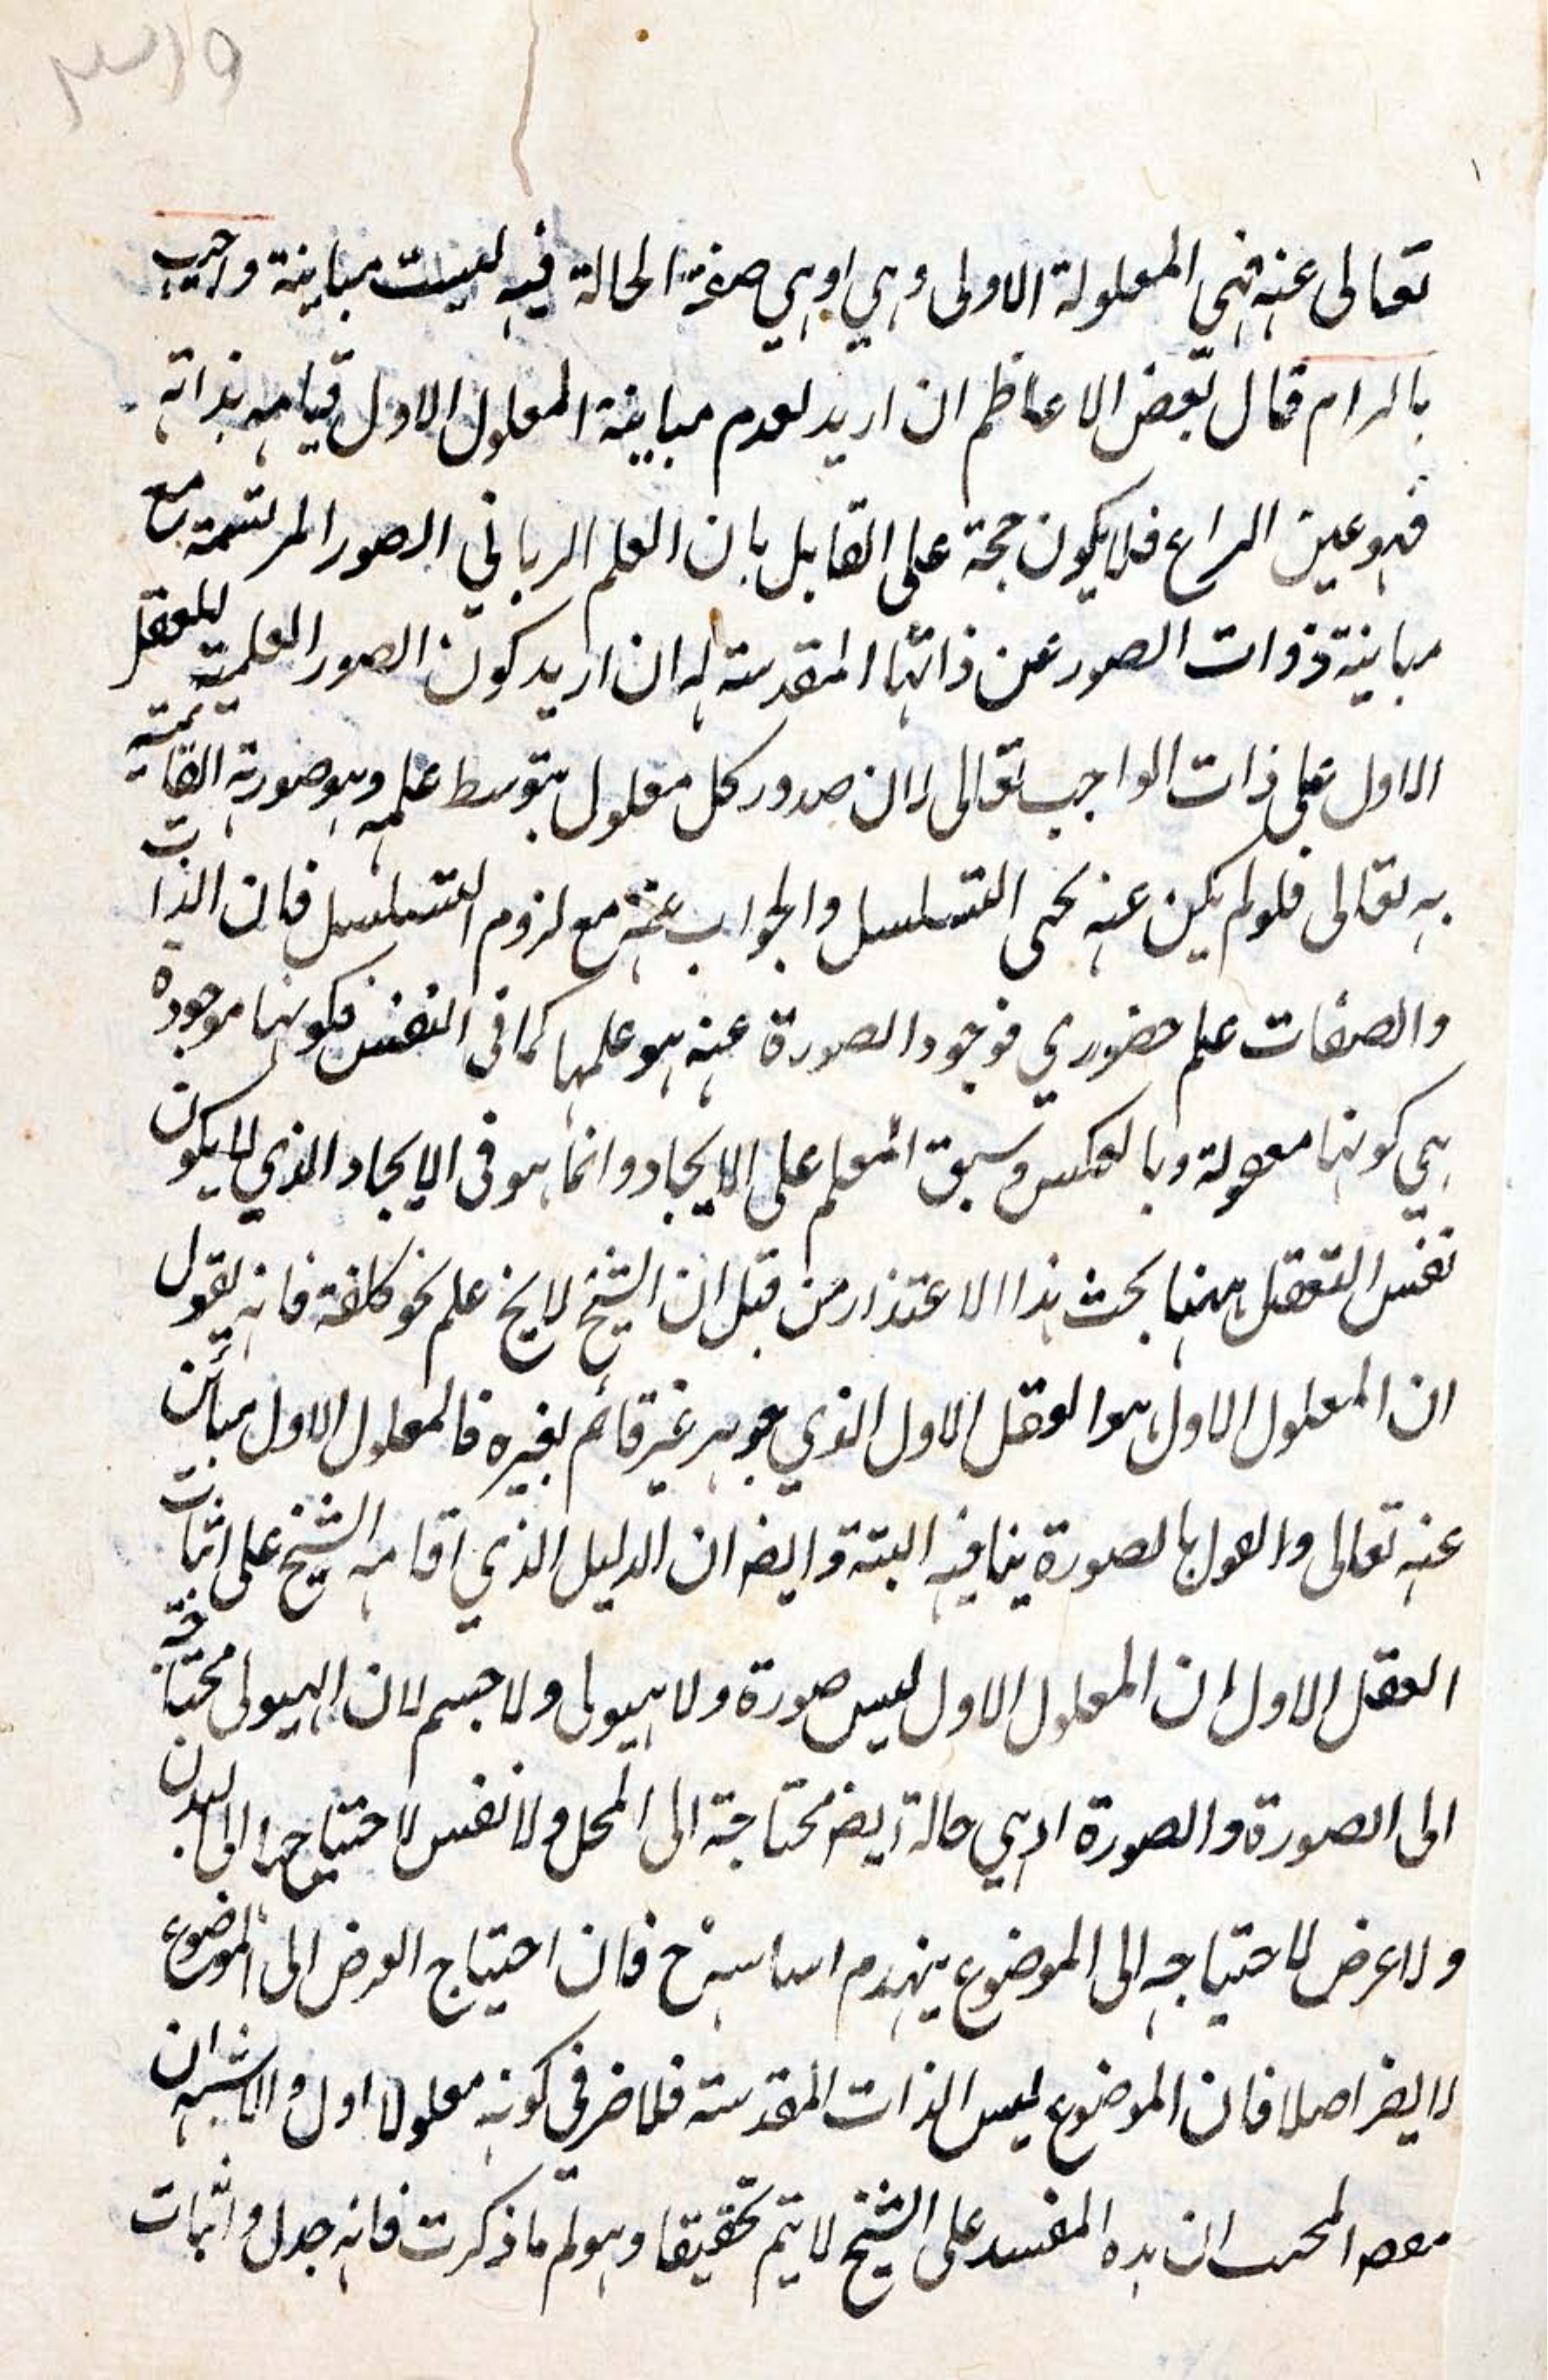 ٣١٥
١
تعالى عنه فهي المعلولة الاولى وهي اوهي صفة الحالة فيه ليست مباينة واجيب
بالرام قال بعض الاعاظم ان اريد لعدم مباينة المعلول الاول قيامه بذاته
فهو عين النزاع فلا يكون حجة على القايل بان العلم الرباني الصور المرتسمة مع
مباينة ذوات الصور عن ذاتها المقدسة له ان اريد كون الصور العلمية للعقل
الاول على ذات الواجب تعالى لان صدور كل معلول بتوسط علمه وهو صورته القائمة
به تعالى فلو لم يكن عنه يحى التسلسل والجواب عنه مع لزوم التسلسل فان الذات
والصفات علم حضوري فوجود الصورة عنه هو علمها كما في النفس فكونها موجودة
هي كونها معقولة وبالعكس وسبق العلم على الايجاد وانما هو في الايجاد الذي لا يكون
نفس التعقل ههنا بحث هذا الاعتذار من قبل ان الشيخ لايخ علم نحو كلفة فانه يقول
ان المعلول الاول هو العقل الاول الذي جوهر غير قائم بغيره فالمعلول الاول مبائن
عنه تعالى والقول بالصورة ينافيه البتة وايضا ان الدليل الذي اقامه الشيخ على اثبات
العقل الاول ان المعلول الاول ليس صورة ولا هيولى ولا جسم لان الهيولى محتاجة
الى الصورة والصورة اذ هي حالة ايضا محتاجة الى المحل ولا نفس لاحتياجها الى البدن
ولا عرض لاحتياجه الى الموضوع ينهدم اساسه ح فان احتياج العرض الى الموضوع
لا يضر اصلا فان الموضوع ليس الذات المقدسة فلا ضر في كونه معلولا اول والاشبه ان
المحب ان هذه المفسد على الشيخ لا يتم تحقيقا وهو لم ما ذكرت فانه جدل واثبات